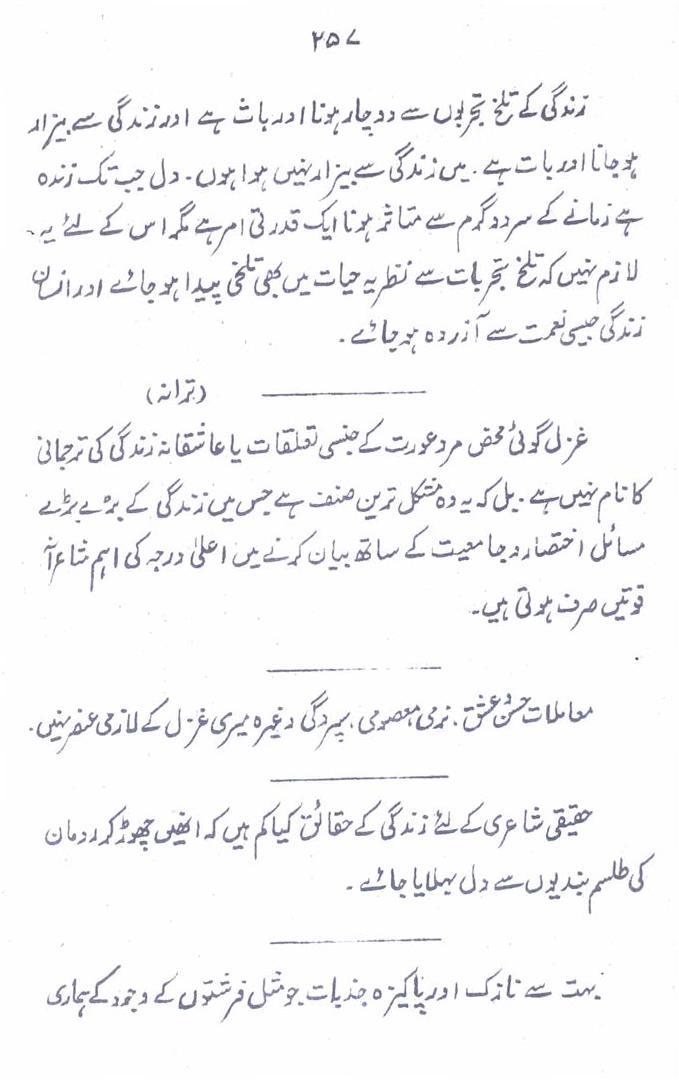 ۲۵۷
زندگی کے تلخ تجربوں سے دوچار ہونا اور بات ہے اور زندگی سے بیزار
ہو جانا اور بات ہے۔ میں زندگی سے بیزار نہیں ہوا ہوں۔ دل جب تک زندہ
ہے زمانے کے سرد و گرم سے متاثر ہونا ایک قدرتی امر ہے مگر اس کے لئے یہ
لازم نہیں کہ تلخ تجربات سے نظریہ حیات میں بھی تلخی پیدا ہو جائے اور انسان
زندگی جیسی نعمت سے آزردہ ہو جائے۔
(ترانہ)
غزل گوئی محض مرد عورت کے جنسی تعلقات یا عاشقانہ زندگی کی ترجمانی
کا نام نہیں ہے۔ بل کہ یہ وہ مشکل ترین صنف ہے جس میں زندگی کے بڑے بڑے
مسائل اختصار و جامعیت کے ساتھ بیان کرنے میں اعلیٰ درجہ کی اہم شاعرانہ
قوتیں صرف ہوتی ہیں۔
معاملات حسن و عشق، نرمی، معصومی، سپردگی وغیرہ میری غزل کے لازمی عنصر نہیں۔
حقیقی شاعری کے لئے زندگی کے حقائق کیا کم ہیں کہ انھیں چھوڑ کر رومان
کی طلسم بندیوں سے دل بہلایا جائے۔
بہت سے نازک اور پاکیزہ جذبات جو مثل فرشتوں کے وجود کے ہماری